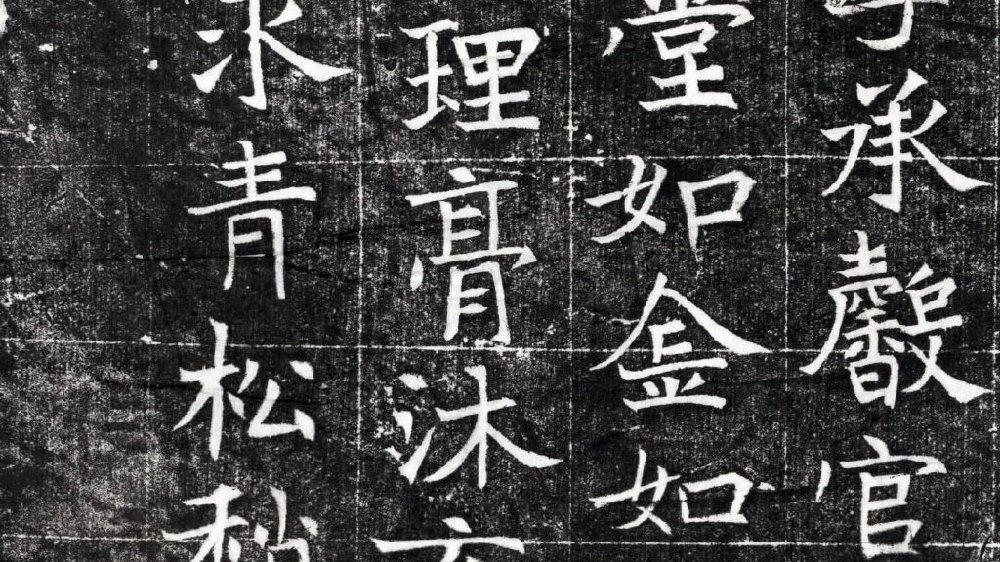 承馨官
堂如金如
理膏沐
青松